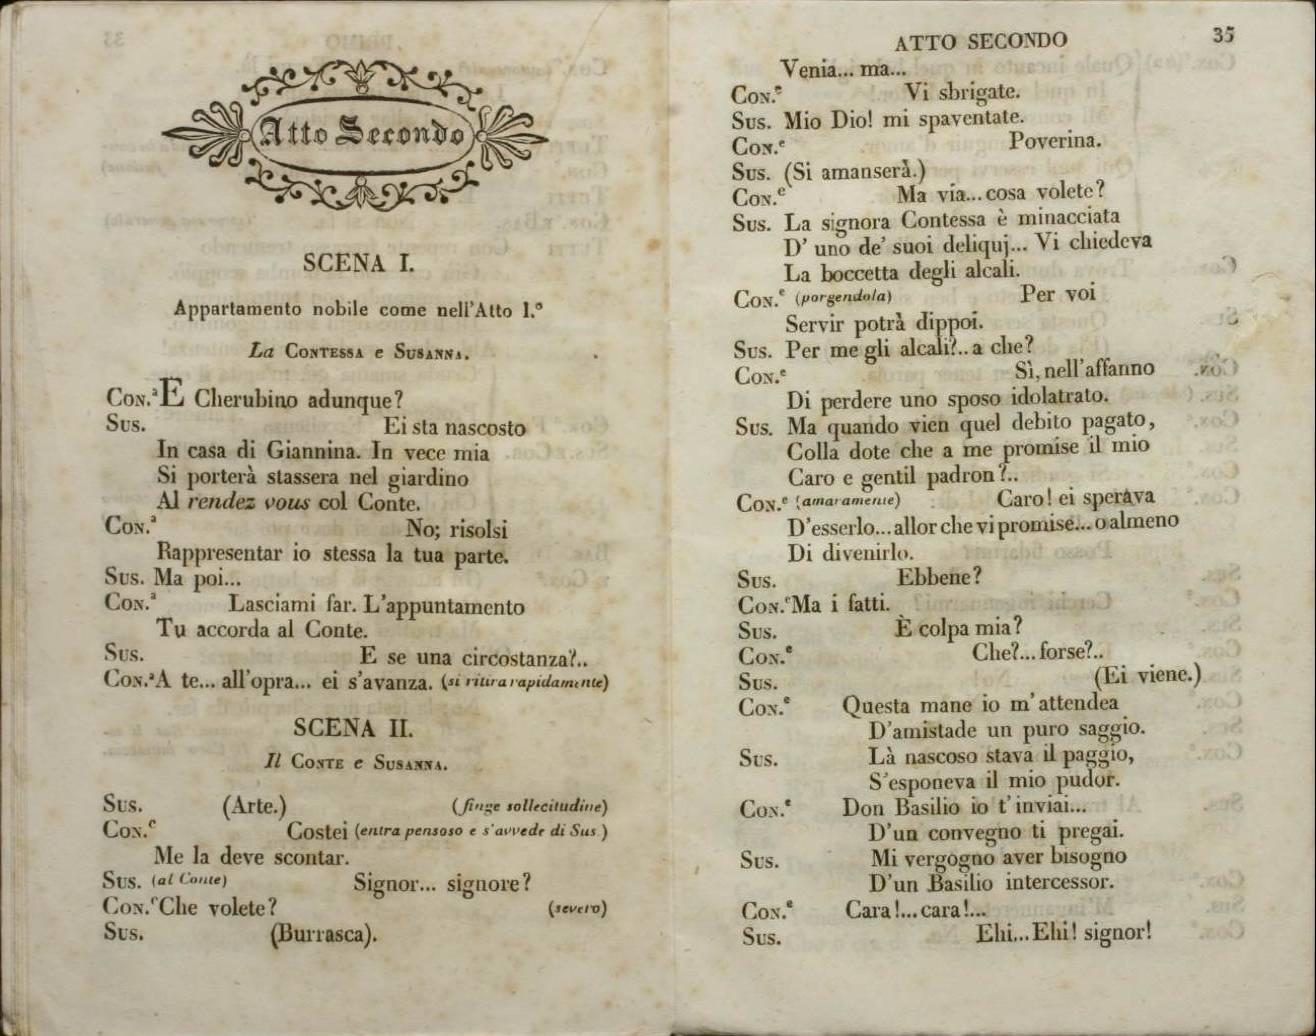 Atto Secondo
SCENA I.
Appartamento nobile come nell'Atto I.°
La CONTESSA e SUSANNA.
CON.ª E Cherubino adunque?
SUS. Ei sta nascosto
In casa di Giannina. In vece mia
Si porterà stassera nel giardino
Al rendez vous col Conte.
CON.ª No; risolsi
Rappresentar io stessa la tua parte.
SUS. Ma poi...
CON.ª Lasciami far. L'appuntamento
Tu accorda al Conte.
SUS. E se una circostanza?..
CON.ª A te... all'opra... ei s'avanza. (si ritira rapidamente)
SCENA II.
Il CONTE e SUSANNA.
SUS. (Arte.) (finge sollecitudine)
CON.e Costei (entra pensoso e s'avvede di Sus.)
Me la deve scontar.
SUS. (al Conte) Signor... signore?
CON.e Che volete? (severo)
SUS. (Burrasca).
ATTO SECONDO 35
Venia... ma...
CON.e Vi sbrigate.
SUS. Mio Dio! mi spaventate.
CON.e Poverina.
SUS. (Si amanserà.)
CON.e Ma via... cosa volete?
SUS. La signora Contessa è minacciata
D' uno de' suoi deliquj... Vi chiedeva
La boccetta degli alcali.
CON.e (porgendola) Per voi
Servir potrà dippoi.
SUS. Per me gli alcali?.. a che?
CON.e Sì, nell'affanno
Di perdere uno sposo idolatrato.
SUS. Ma quando vien quel debito pagato,
Colla dote che a me promise il mio
Caro e gentil padron?..
CON.e (amaramente) Caro! ei sperava
D'esserlo... allor che vi promise... o almeno
Di divenirlo.
SUS. Ebbene?
CON.e Ma i fatti.
SUS. È colpa mia?
CON.e Che?... forse?..
SUS. (Ei viene.)
CON.e Questa mane io m'attendea
D'amistade un puro saggio.
SUS. Là nascoso stava il paggio,
S'esponeva il mio pudor.
CON.e Don Basilio io t'inviai...
D'un convegno ti pregai.
SUS. Mi vergogno aver bisogno
D'un Basilio intercessor.
CON.e Cara!... cara!...
SUS. Ehi... Ehi! signor!